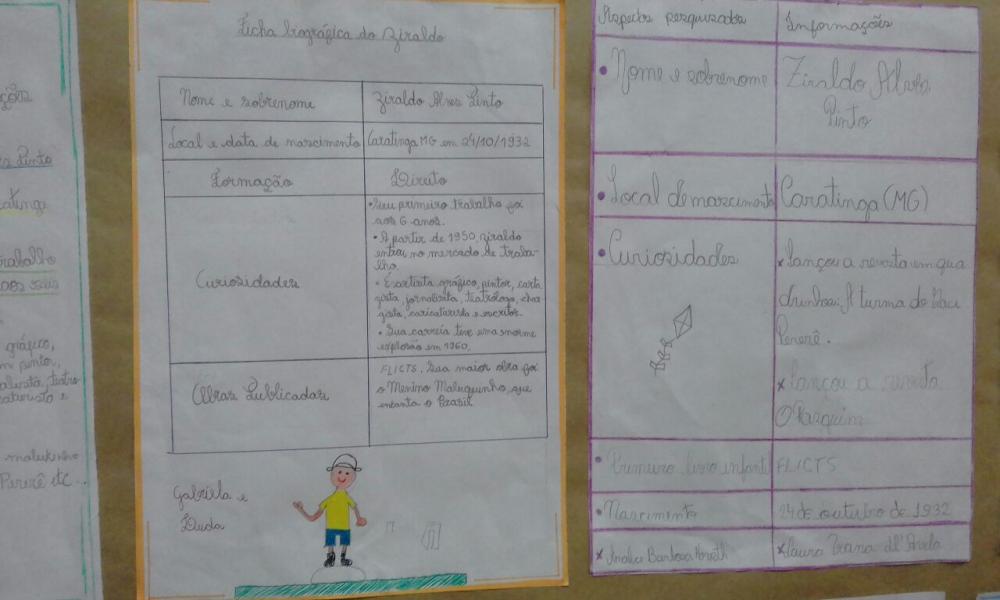 ções
Pinto
atinga
trabalho
aos seis
gráfico,
m pintor,
alista, teatro
caturista e
maluquinho
Pererê etc...
Ficha biográgica do Ziraldo
Nome e sobrenome
Ziraldo Alves Pinto
Local e data de nascimento
Caratinga MG em 24/10/1932
Formação
Direito
Curiosidades
•Seu primeiro trabalho foi
aos 6 anos.
• A partir de 1950, ziraldo
entrou no mercado de traba-
lho.
• É artista gráfico, pintor, cart
gista, jornalista, teatrólogo, cha
gista, caricaturista e escritor.
• Sua carreia teve uma enorme
explosão em 1960.
Obras Publicadas
FLICTS. Sua maior obra foi
o Menino Maluquinho, que
encanta o Brasil
Gabriela e
Duda
Aspectos pesquisados
Informações
• Nome e sobrenome
Ziraldo Alves
Pinto
• Local de nascimento
Caratinga (MG)
• Curiosidades
x Lançou a revista em qua
drinhos: A turma do Saci
Pererê.
x Lançou a revista
O Pasquim
• Primeiro livro infantil
FLICTS
• Nascimento
24 de outubro de 1932
x Barbosa
x Laura Viana d'